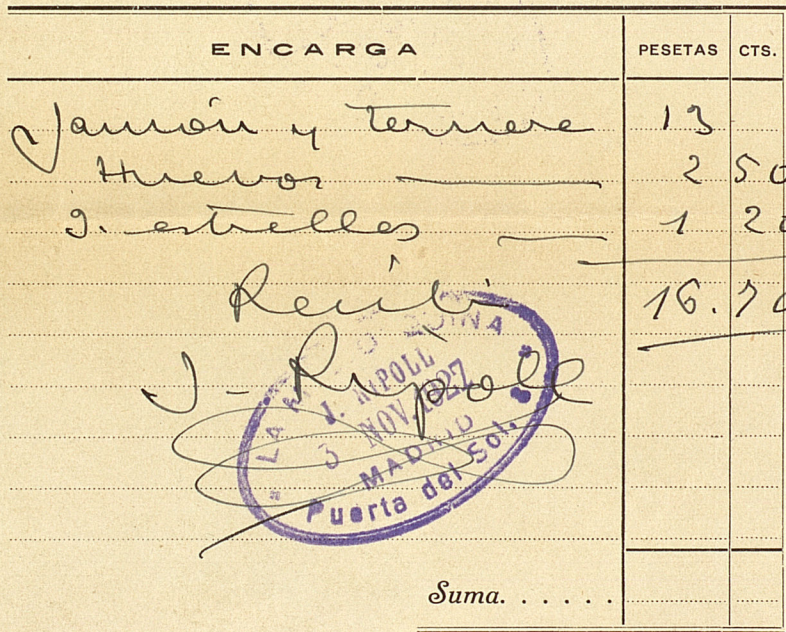 ENCARGA PESETAS CTS.
Jamón y ternera 13
Huevos 2 50
g. estrellas 1 20
Recibí 16.70
J. Ripoll
LA
J. RIPOLL
3 NOV. 1927
MADRID
Puerta del Sol.
Suma. . . . . .